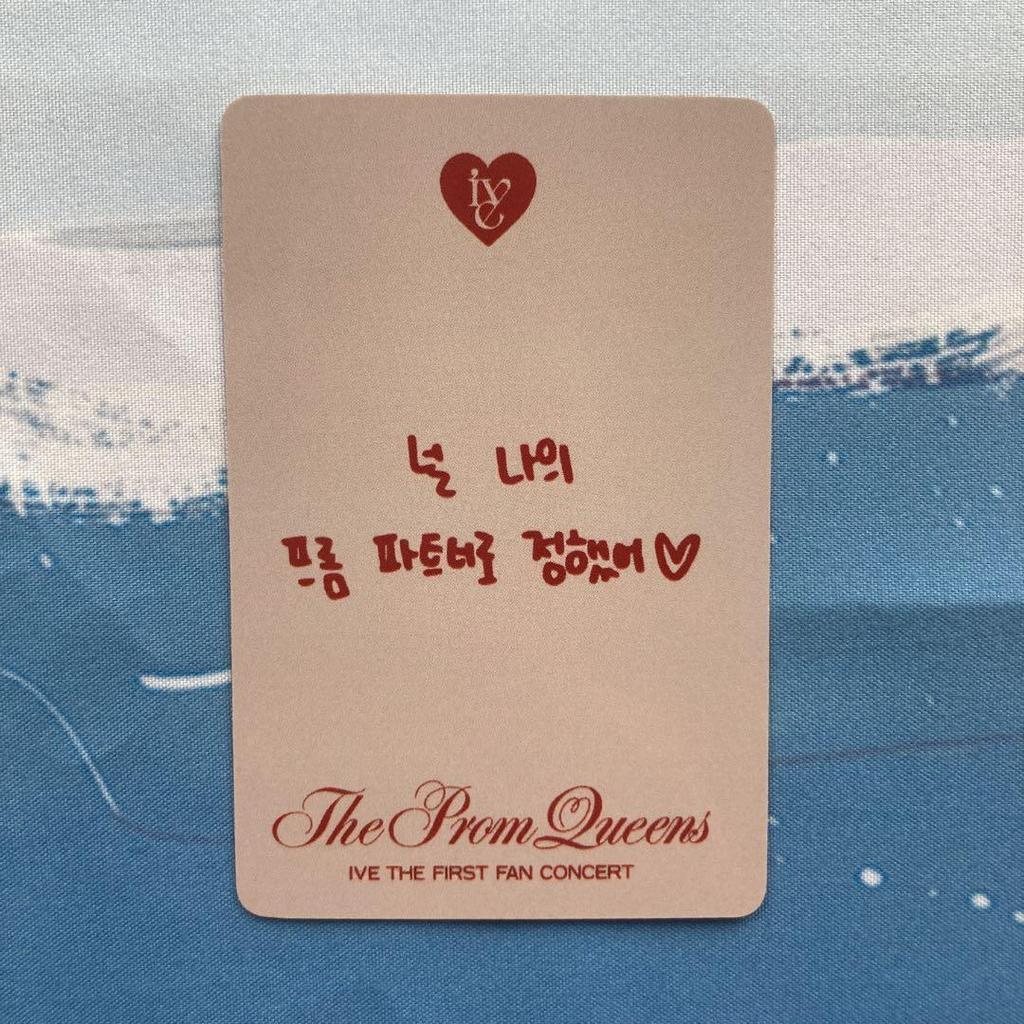 ive
널 나의
프롬 파트너로 정했어♡
The Prom Queens
IVE THE FIRST FAN CONCERT